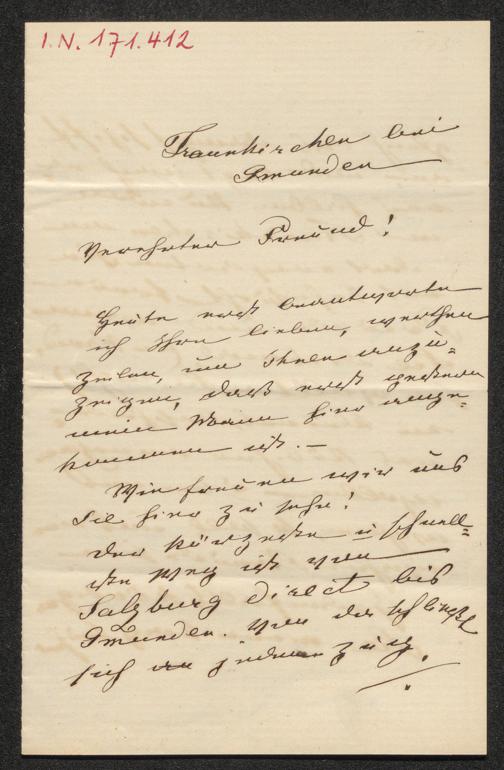 I.N. 171.412
Traunkirchen bei
Gmunden
Verehrter Freund!
Heute erst beantworte
ich Ihre lieben, werthen
Zeilen, um Ihnen anzu-
zeigen, daß erst gestern
mein Mann hier ange-
kommen ist. –
Wie freuen wir uns
Sie hier zu sehn!
Der kürzeste u schnell-
ste Weg ist von
Salzburg direct bis
Gmunden. Von da schließt
sich an jeden Zug.